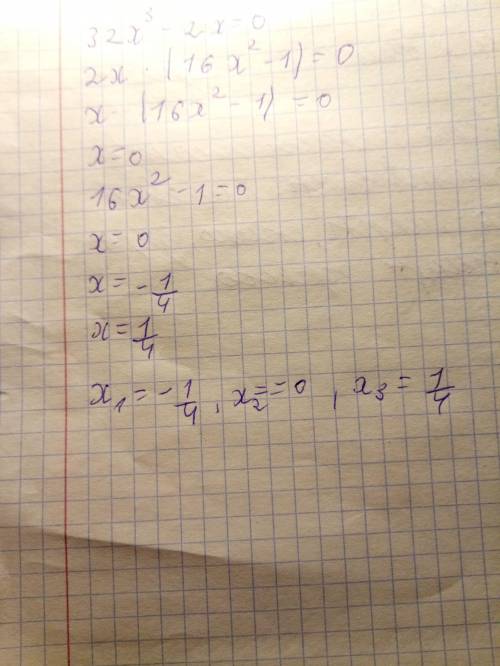 32x³ - 2x = 0
2x · (16x² - 1) = 0
x · (16x² - 1) = 0
x = 0
16x² - 1 = 0
x = 0
x = -1/4
x = 1/4
x₁ = -1/4, x₂ == 0, x₃ = 1/4